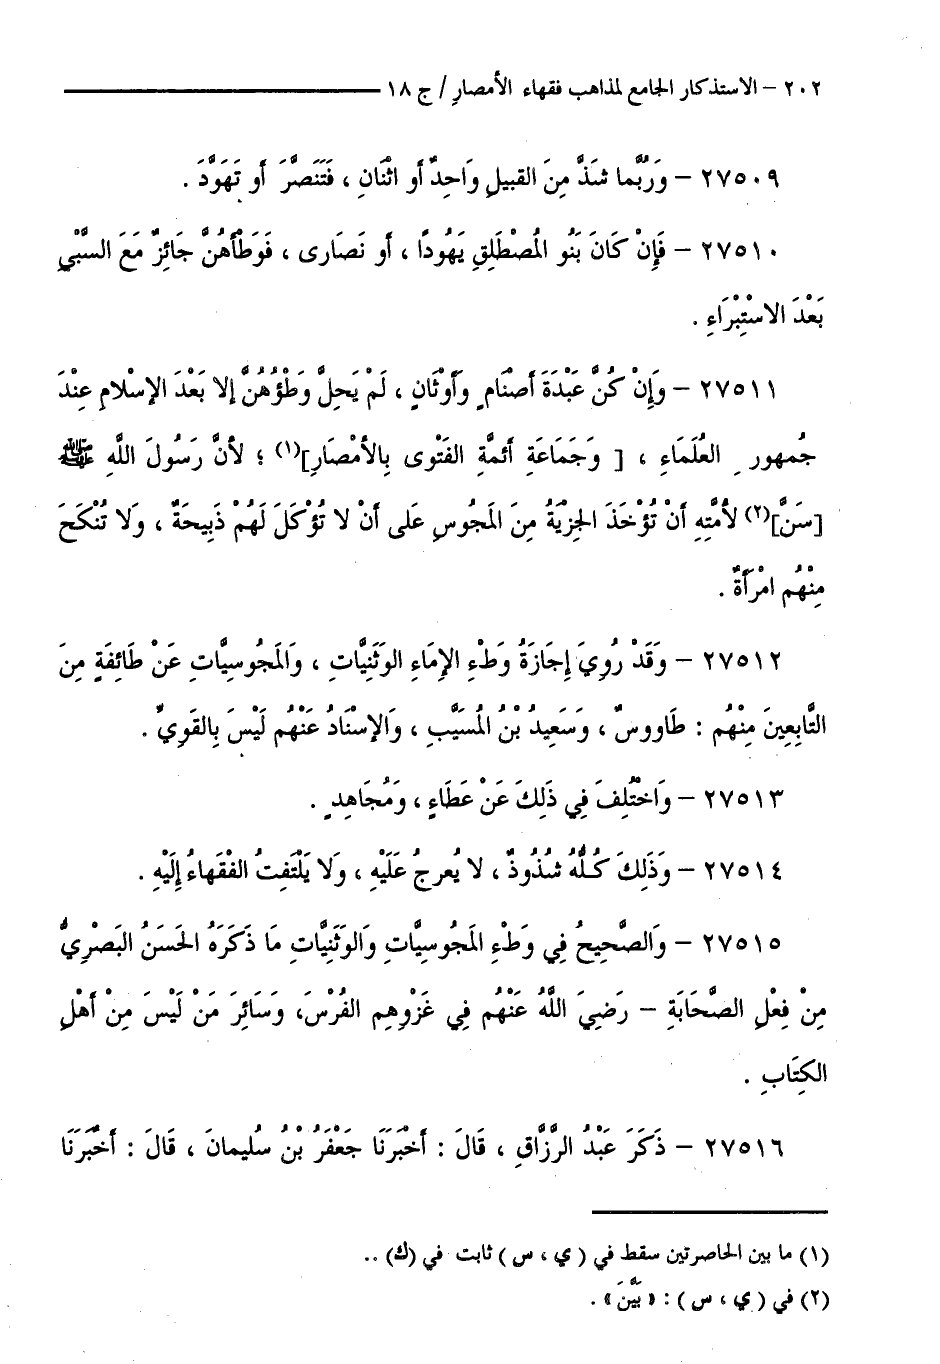 ٢٠٢ – الاستذكار الجامع لمذاهب فقهاء الأمصارِ / ج ١٨
٢٧٥٠٩ – وَرُبَّما شَذَّ مِنَ القبيلِ وَاحِدٌ أو اثْنَانِ ، فَتَنَصَّرَ أو تَهَوَّدَ .
٢٧٥١٠ – فَإِنْ كَانَ بَنُو المُصْطَلِقِ يَهُودًا ، أو نَصَارى ، فَوَطْأَهُنَّ جَائِزٌ مَعَ السَّبْيِ
بَعْدَ الاسْتِبْرَاءِ .
٢٧٥١١ – وَإِنْ كُنَّ عَبْدَةَ أَصْنَامٍ وَأَوْثَانٍ ، لَمْ يَحِلَّ وَطْؤُهُنَّ إلا بَعْدَ الإِسْلامِ عِنْدَ
جُمهورِ العُلَمَاءِ ، [ وَجَمَاعَةِ أَئمَّةِ الفَتْوى بِالأَمْصَارِ](١) ؛ لأنَّ رَسُولَ اللَّهِ ﷺ
[سَنَّ](٢) لأُمَّتِهِ أَنْ تُؤْخَذَ الجِزْيَةُ مِنَ المَجُوسِ عَلى أَنْ لا تُؤْكَلَ لَهُمْ ذَبِيحَةٌ ، وَلا تُنْكَحَ
مِنْهُم امْرَأَةٌ .
٢٧٥١٢ – وَقَدْ رُوِيَ إِجَازَةُ وَطْءِ الإِمَاءِ الوَثَنِيَّاتِ ، وَالمَجُوسِيَّاتِ عَنْ طَائِفَةٍ مِنَ
التَّابِعِينَ مِنْهُم : طَاووسٌ ، وَسَعِيدُ بْنُ المُسَيَّبِ ، وَالإِسْنَادُ عَنْهُم لَيْسَ بِالقَوِيِّ .
٢٧٥١٣ – وَاخْتُلِفَ فِي ذَلِكَ عَنْ عَطَاءٍ ، وَمُجَاهِدٍ .
٢٧٥١٤ – وَذَلِكَ كُلُّهُ شُذُوذٌ ، لا يُعرجُ عَلَيْهِ ، وَلا يَلْتَفِتُ الفُقَهاءُ إِلَيْهِ .
٢٧٥١٥ – وَالصَّحِيحُ فِي وَطْءِ المَجُوسِيَّاتِ وَالوَثَنِيَّاتِ مَا ذَكَرَهُ الحَسَنُ البَصْرِيُّ
مِنْ فِعْلِ الصَّحَابَةِ – رَضِيَ اللَّهُ عَنْهُم فِي غَزْوِهِم الفُرْسَ، وَسَائِرَ مَنْ لَيْسَ مِنْ أَهْلِ
الكِتَابِ .
٢٧٥١٦ – ذَكَرَ عَبْدُ الرَّزَّاقِ ، قَالَ : أَخْبَرَنَا جَعْفَرُ بْنُ سُليمانَ ، قَالَ : أَخْبَرَنَا
(١) ما بين الحاصرتين سقط في ( ي ، س ) ثابت في (ك) ..
(٢) في ( ي ، س ) : « بَيَّنَ » .